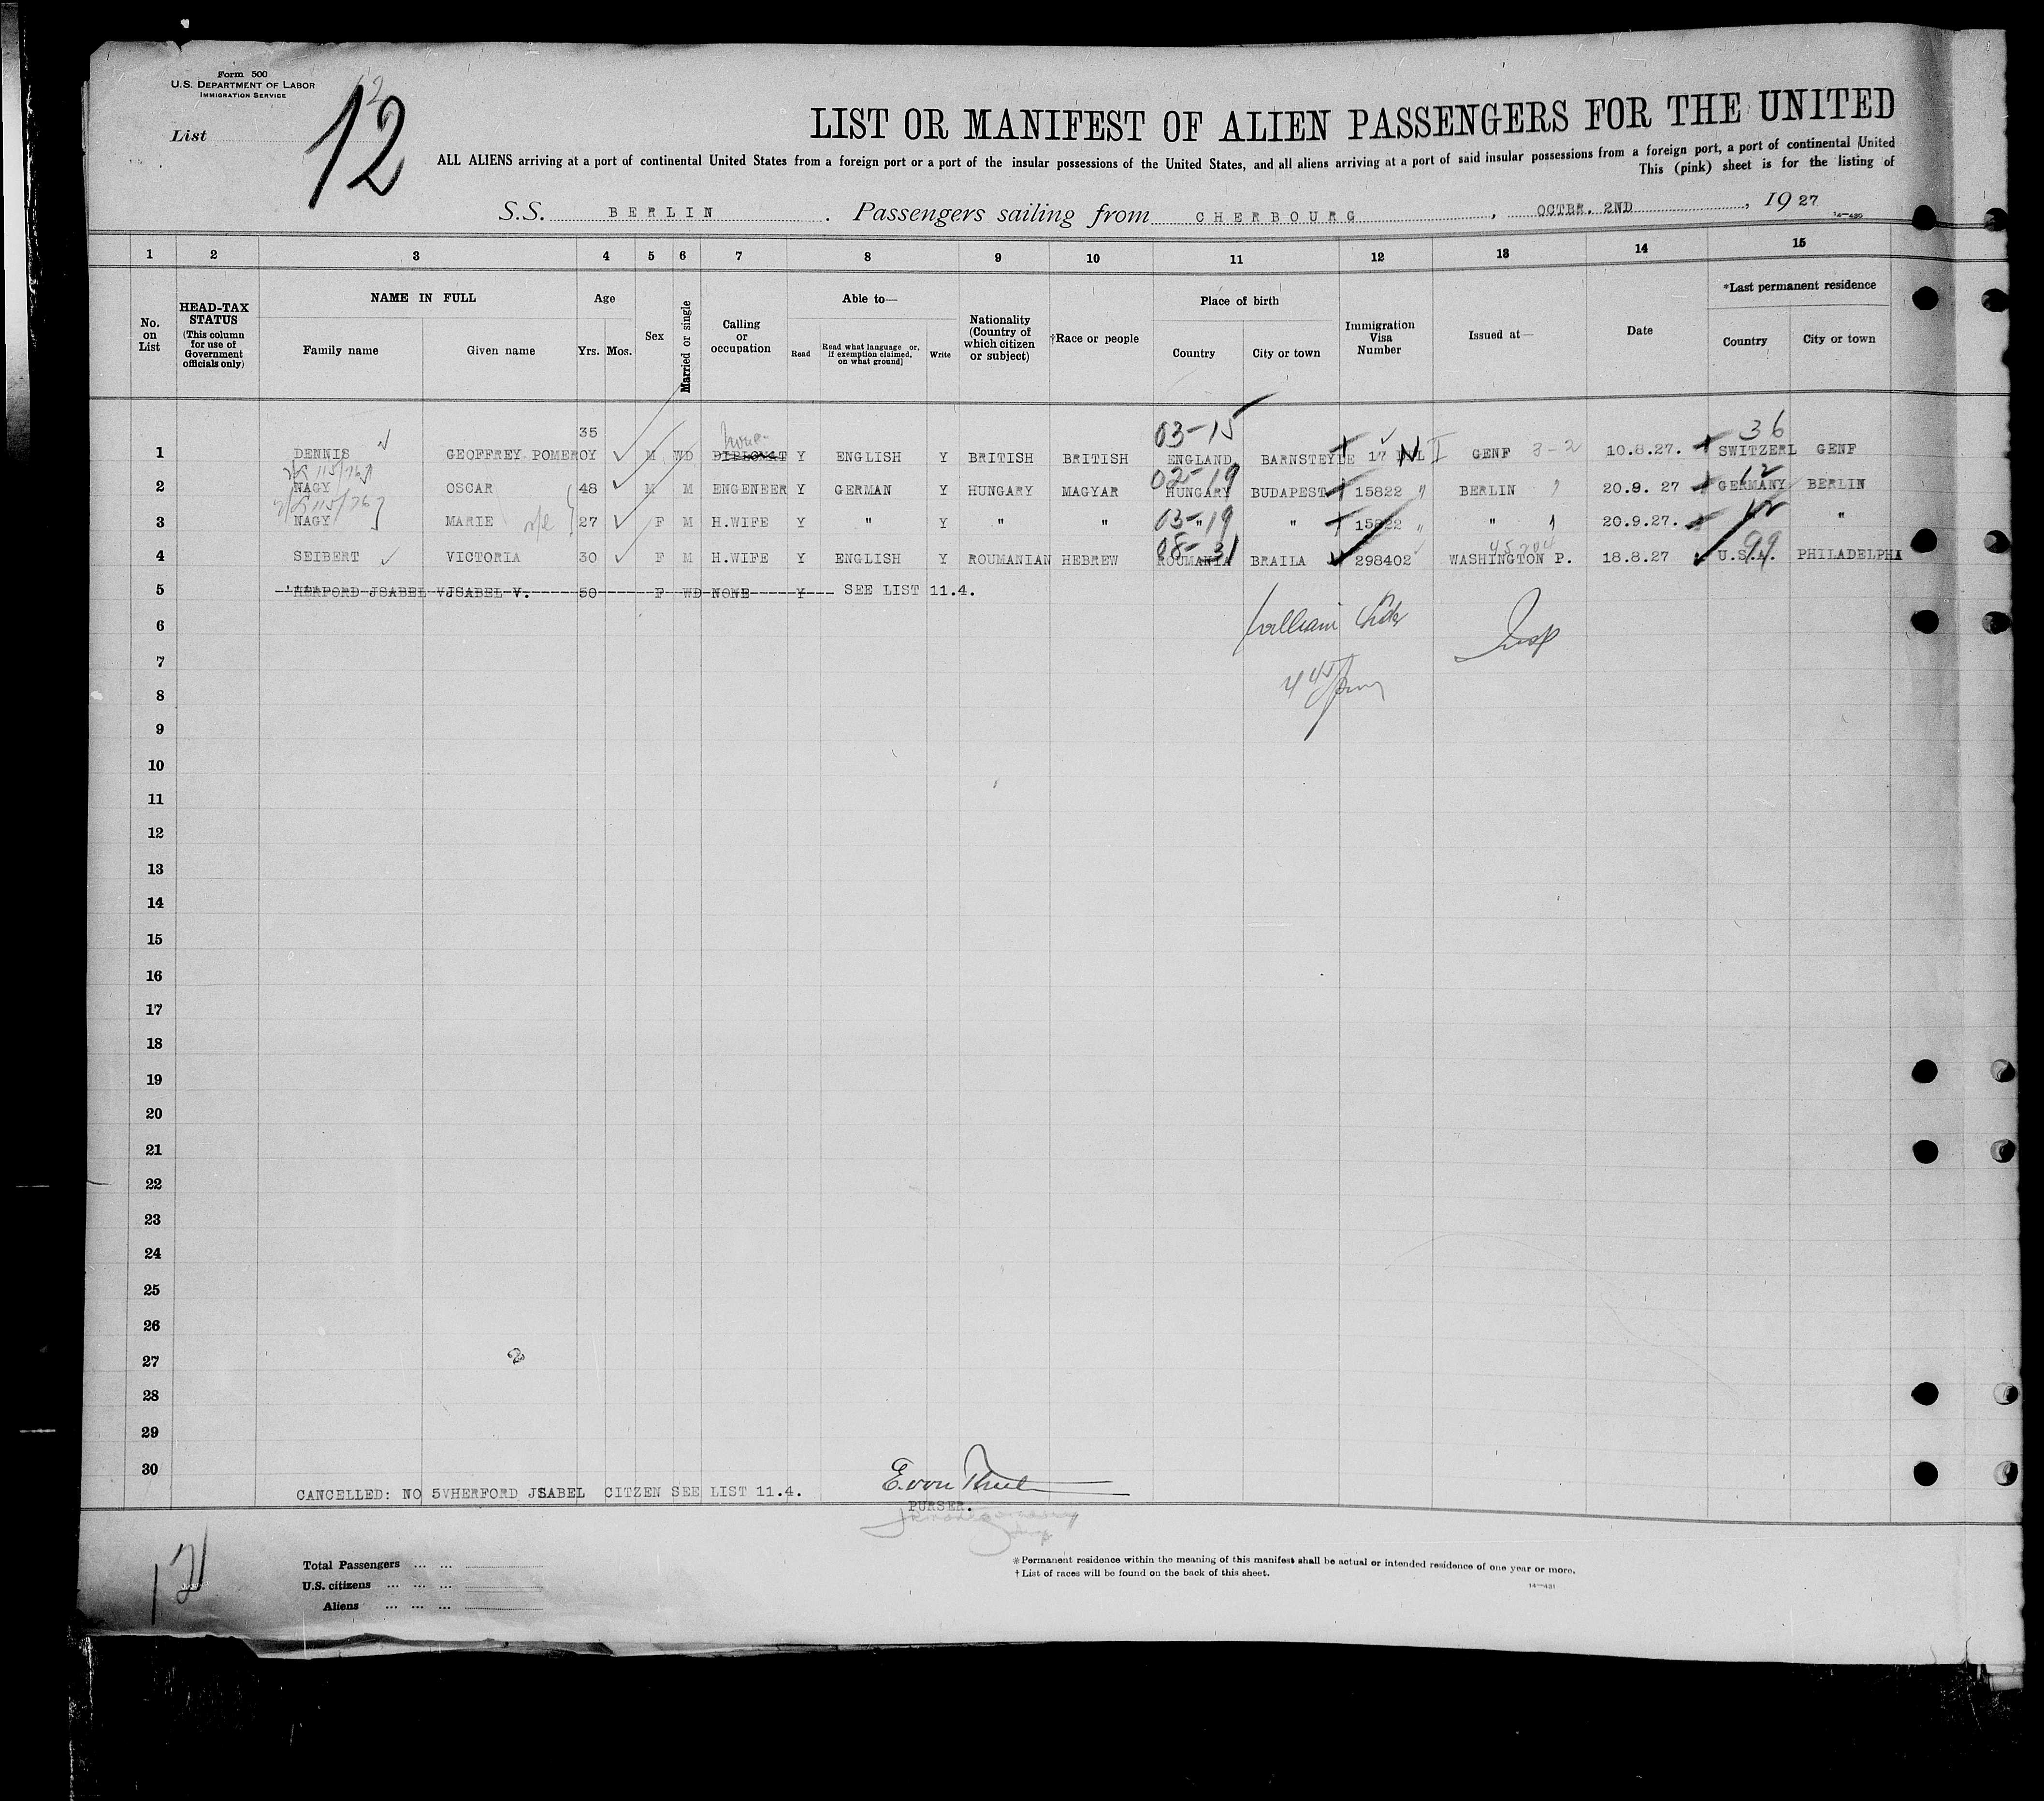 Form 500
U.S. DEPARTMENT OF LABOR
IMMIGRATION SERVICE
List 12
2
LIST OR MANIFEST OF ALIEN PASSENGERS FOR THE UNITED
ALL ALIENS arriving at a port of continental United States from a foreign port or a port of the insular possessions of the United States, and all aliens arriving at a port of said insular possessions from a foreign port, a port of continental United
This (pink) sheet is for the listing of
S.S. BERLIN . Passengers sailing from CHERBOURG , OCTBR. 2ND , 19 27
14—430
1 2 3 4 5 6 7 8 9 10 11 12 13 14 15
No. on List
HEAD-TAX STATUS (This column for use of Government officials only)
NAME IN FULL Family name Given name
Age Yrs. Mos.
Sex
Married or single
Calling or occupation
Able to— Read Read what language [or, if exemption claimed, on what ground] Write
Nationality (Country of which citizen or subject)
†Race or people
Place of birth Country City or town
Immigration Visa Number
Issued at—
Date
*Last permanent residence Country City or town
35 none 03-15 36
1 DENNIS GEOFFREY POMEROY M WD DIPLOMAT Y ENGLISH Y BRITISH BRITISH ENGLAND BARNSTEYLE 17 GENF 3-2 10.8.27. SWITZERL GENF
115/76 02-19 12
2 NAGY OSCAR 48 M M ENGENEER Y GERMAN Y HUNGARY MAGYAR HUNGARY BUDAPEST 15822 " BERLIN 20.9. 27 GERMANY BERLIN
115/76 03-19 12
3 NAGY MARIE 27 F M H.WIFE Y " Y " " " " 15822 " " 20.9.27. "
08-31 99
4 SEIBERT VICTORIA 30 F M H.WIFE Y ENGLISH Y ROUMANIAN HEBREW ROUMANIA BRAILA 298402 WASHINGTON P. 18.8.27 U.S.A. PHILADELPHI
5 JSABEL V. 50 F WD NONE Y SEE LIST 11.4.
6 William Insp
7
8 4 45
9
10
11
12
13
14
15
16
17
18
19
20
21
22
23
24
25
26
27
28
29
30
CANCELLED: NO 5VHERFORD JSABEL CITZEN SEE LIST 11.4.
E. von
PURSER.
12
Total Passengers ... ...
U.S. citizens ... ... ...
Aliens ... ... ...
*Permanent residence within the meaning of this manifest shall be actual or intended residence of one year or more.
†List of races will be found on the back of this sheet.
14—431